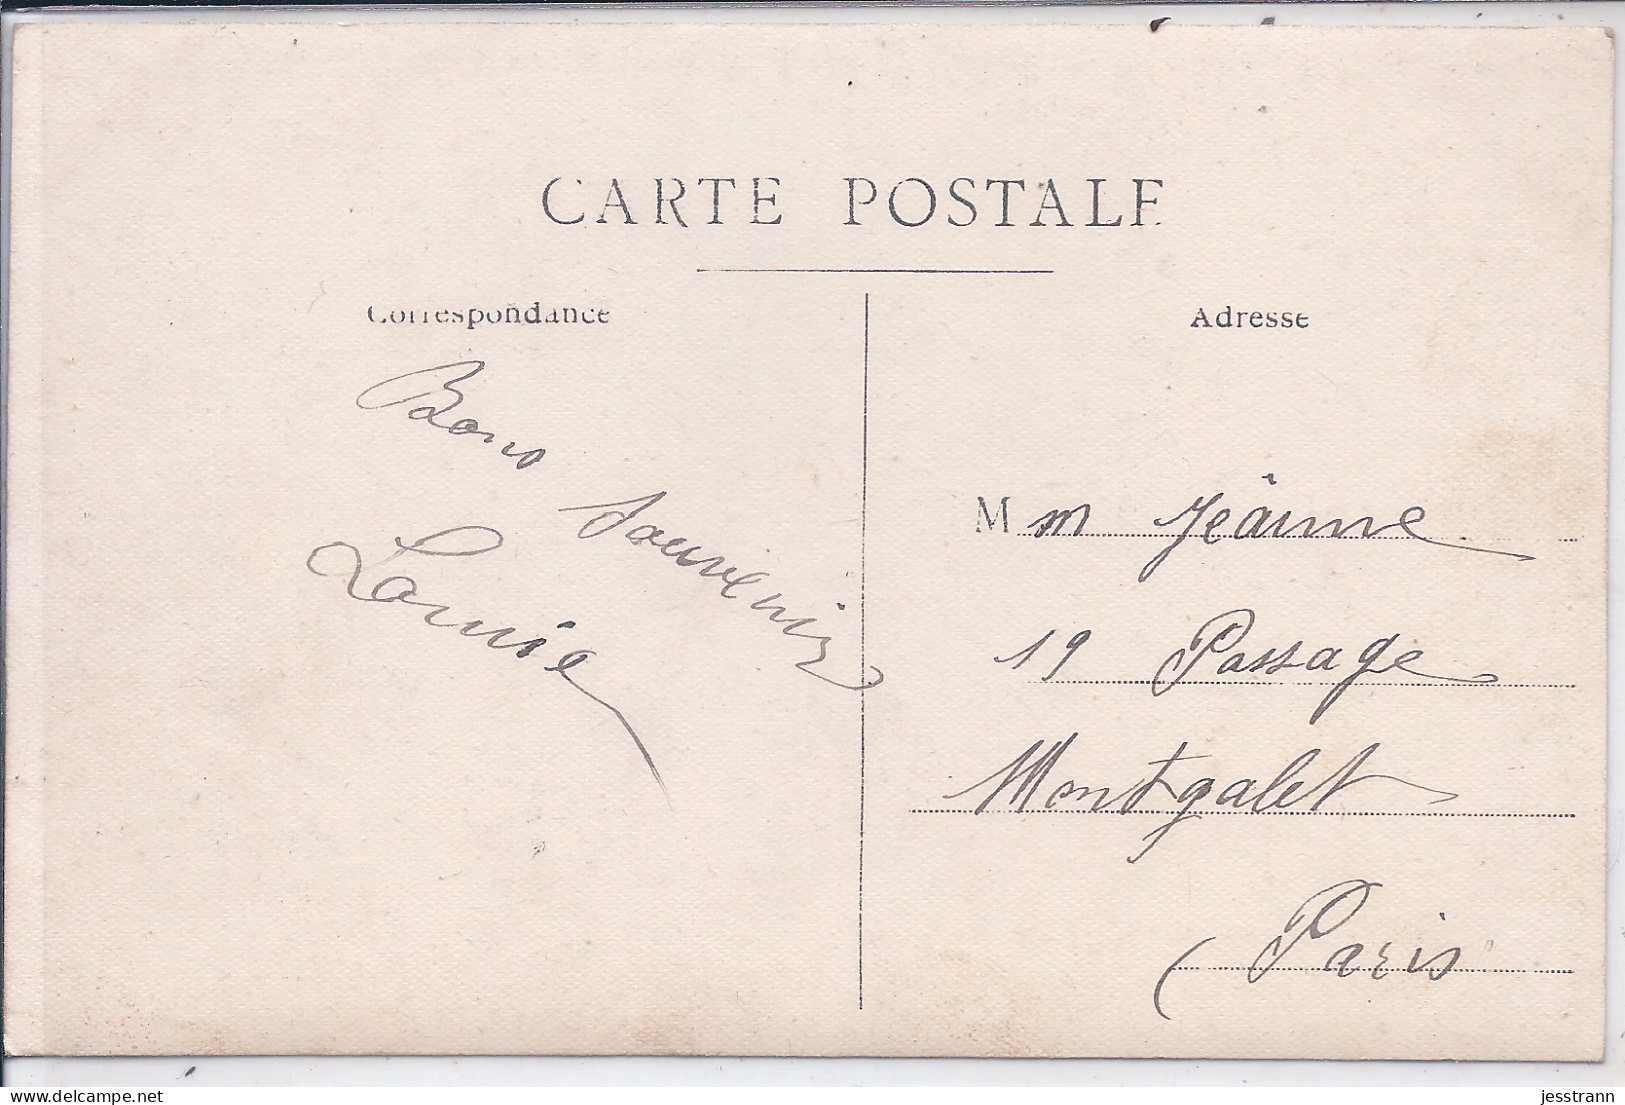 CARTE POSTALE
Correspondance
Bons Souvenirs
Louise
Adresse
Mm Jeanne
19 Passage
Montgalet
Paris
jesstrann
delcampe.net